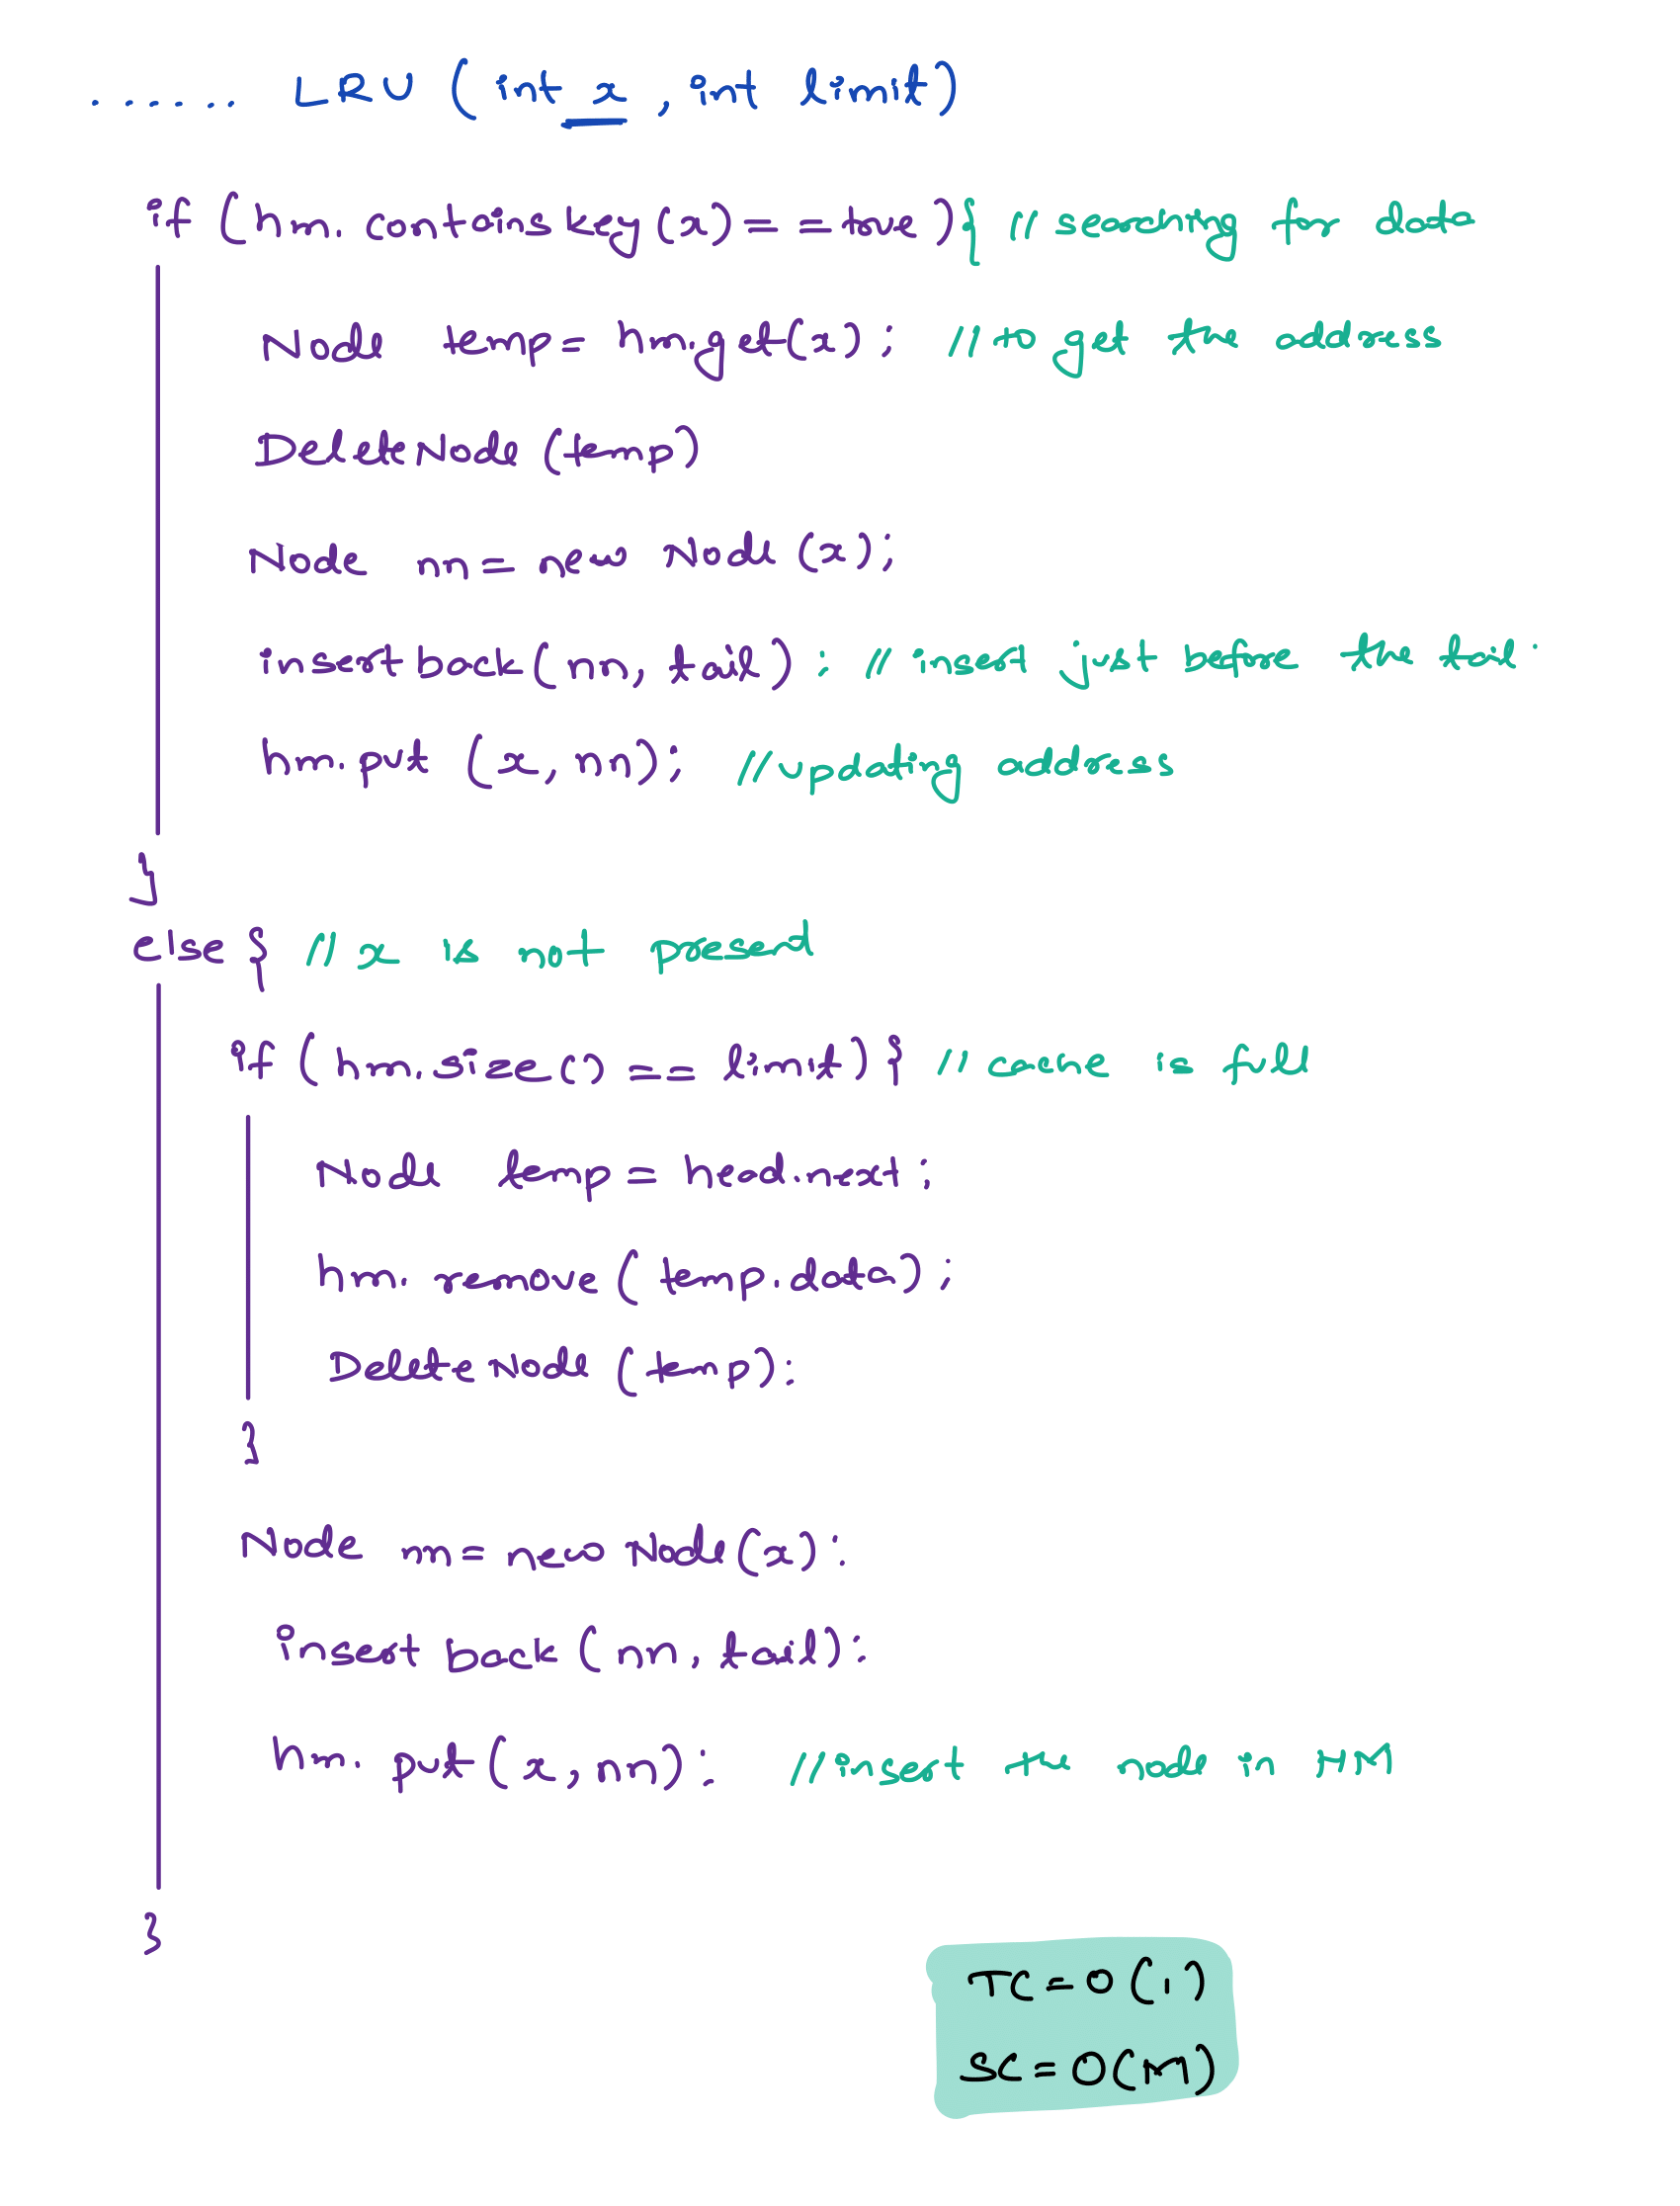 ...... LRU (int x, int limit)
if (hm.containskey(x) == true){ // searching for data
Node temp = hm.get(x); // to get the address
DeleteNode(temp)
Node nn = new Node(x);
insertback(nn, tail); // insert just before the tail.
hm.put (x, nn); // updating address
}
else { // x is not present
if (hm.size() == limit) { // cache is full
Node temp = head.next;
hm.remove(temp.data);
DeleteNode (temp);
}
Node nn = new Node(x);
insert back (nn, tail);
hm.put(x, nn); // insert the node in HM
}
TC = O(1)
SC = O(M)